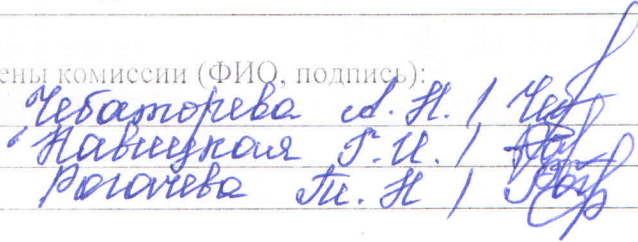 ены комиссии (ФИО, подпись):
Чебаторева А. Н. /
Навицкая Г. И. /
Рогачева Т. Н /